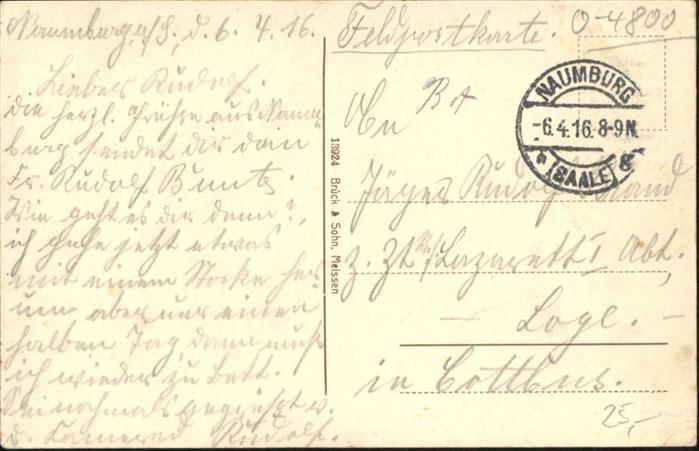 Naumburg a/S., d. 6. 4. 16.
Lieber Rudolf.
Die herzl. Grüße aus Naum-
burg sendet dir dein
Fr. Rudolf Buntz.
Wie geht es dir denn?,
ich gehe jetzt etwas
mit einem Stocke her-
um aber nur einen
halben Tag dann muß
ich wieder zu Bett.
Sei nochmals gegrüßt v.
d. Kamerad Rudolf.
13924 Brück & Sohn, Meissen
Feldpostkarte.
0-4800
NAUMBURG
-6.4.16.8-9N.
* (SAALE) g
An
Jäger Rudolf
z. Zt. Res. Lazarett I Abt.
- Loge. -
in Cottbus.
25,-